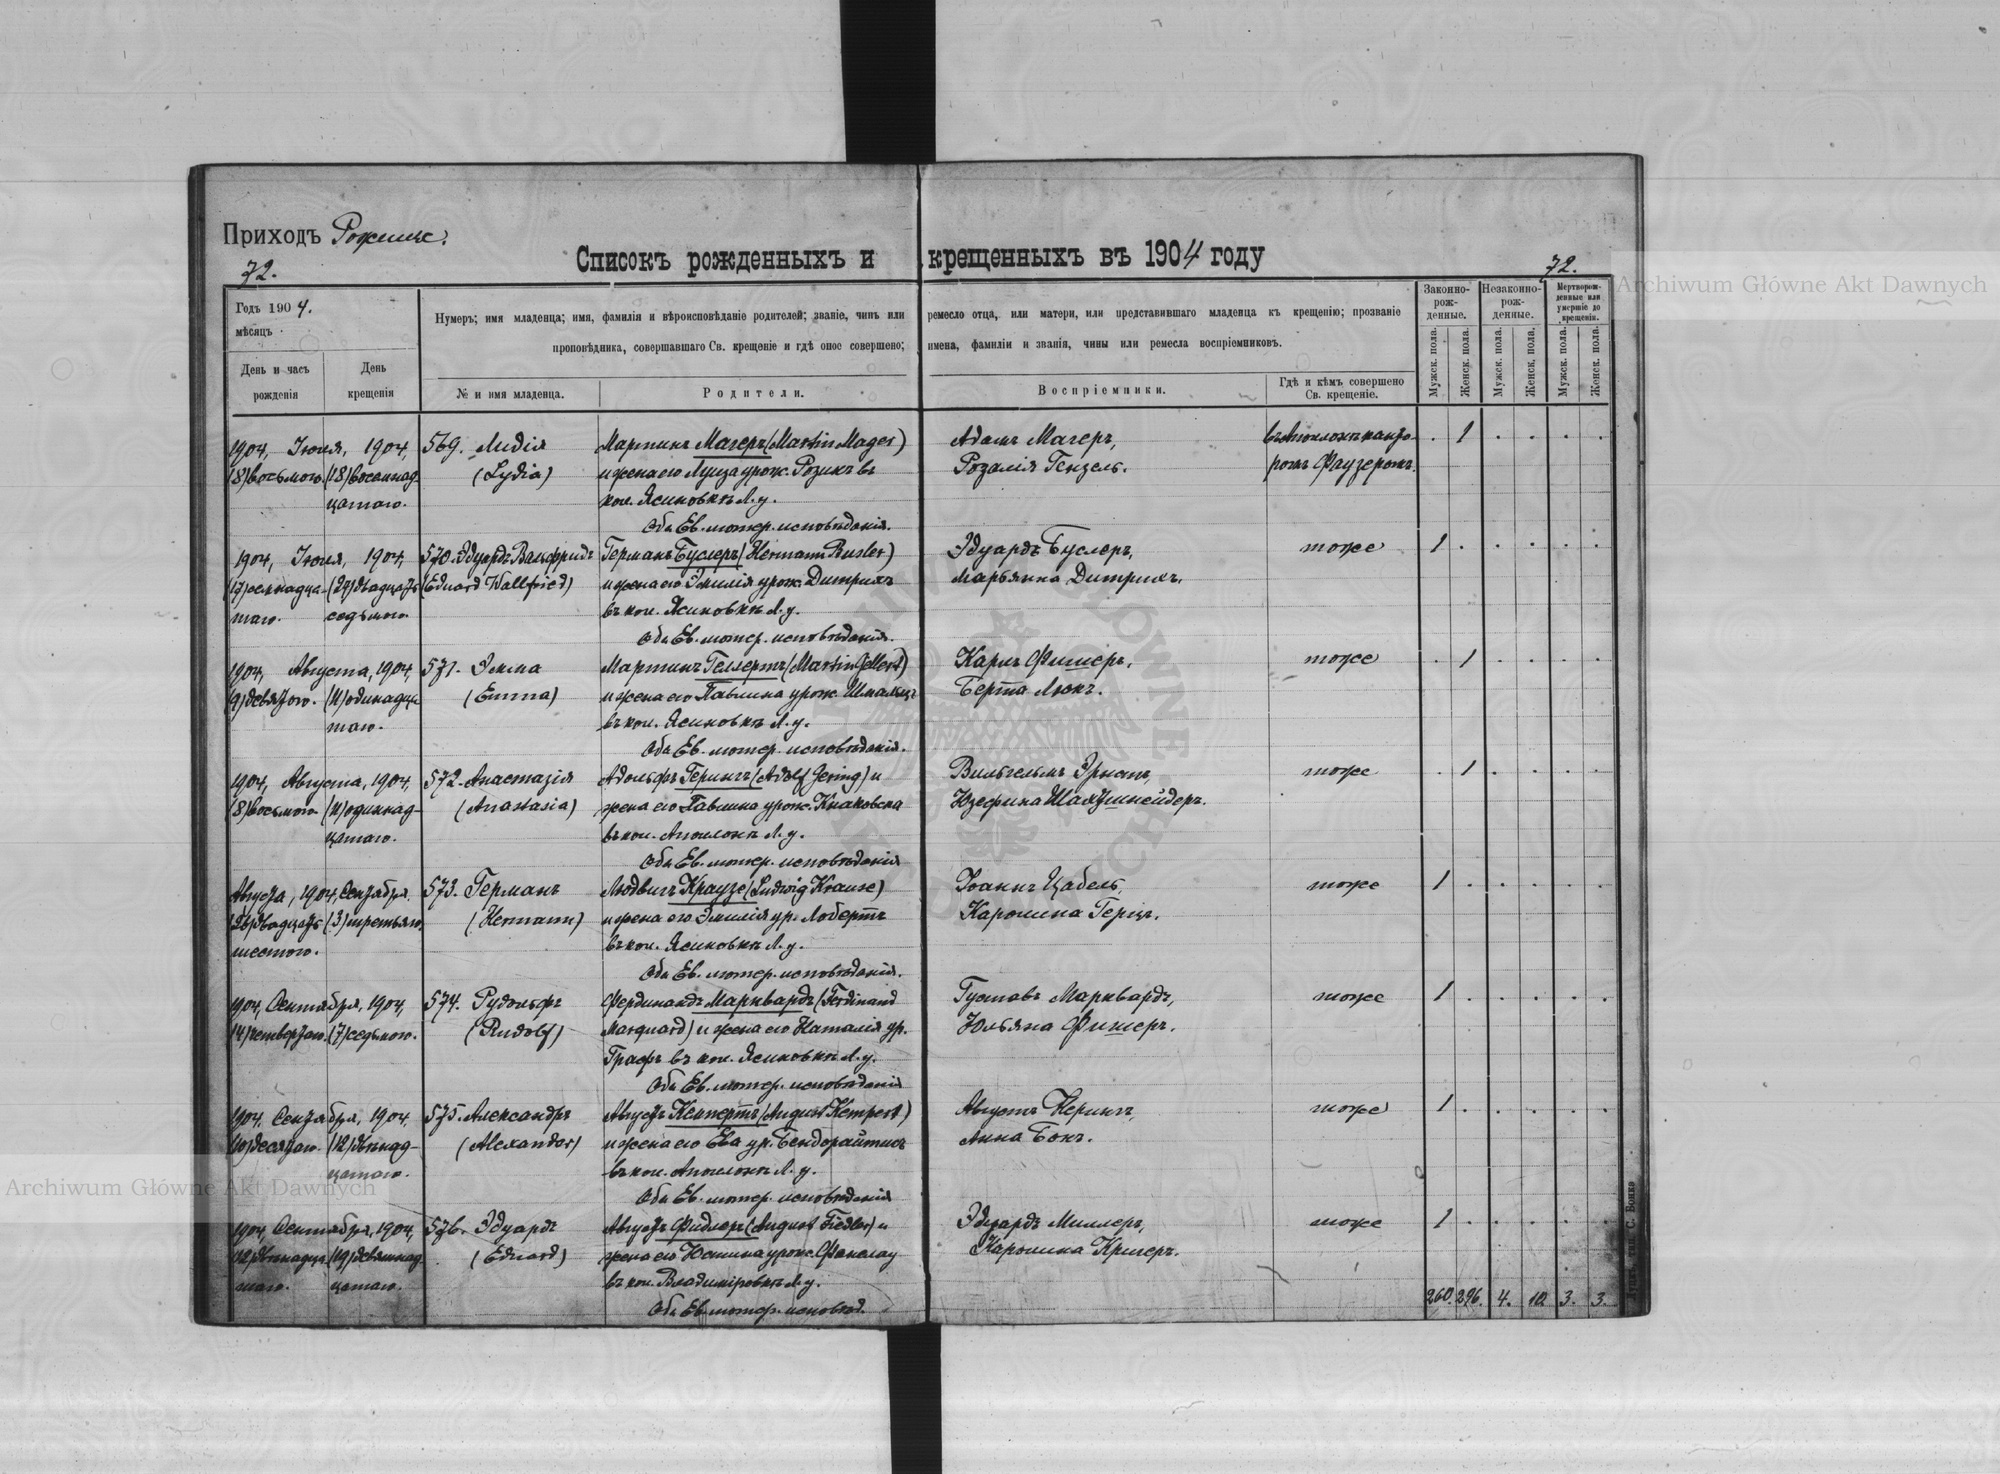 Приходъ Рожище.
72.
Списокъ рожденныхъ и крещенныхъ въ 1904 году
72.
Годъ 1904.
мѣсяцъ
День и часъ рожденія
День крещенія
Нумеръ; имя младенца; имя, фамилія и вѣроисповѣданіе родителей; званіе, чинъ или ремесло отца, или матери, или представившаго младенца къ крещенію; прозваніе
проповѣдника, совершавшаго Св. крещеніе и гдѣ оное совершено; имена, фамиліи и званія, чины или ремесла воспріемниковъ.
№ и имя младенца.
Родители.
Воспріемники.
Гдѣ и кѣмъ совершено Св. крещеніе.
Законно-рож-денные.
Незаконно-рож-денные.
Мертворож-денные или умершіе до крещенія.
Мужск. пола.
Женск. пола.
Мужск. пола.
Женск. пола.
Мужск. пола.
Женск. пола.
1904, Іюля, 1904, 569. Лидія Мартинъ Магеръ (Martin Mager) Адамъ Магеръ, 1
(8) восьмого. (18) восемнад- (Lydia) и жена его Луиза урож. Розикъ въ Розалія Гензель.
цатаго. кол. Ясиновкѣ Л. у.
Оба Ев. лютер. исповѣданія.
1904, Іюля, 1904, 570. Эдуардъ Вальфридъ Германъ Буслеръ (Hermann Busler) Эдуардъ Буслеръ, тоже 1
(17) семнадца- (27) двадцать (Eduard Wallfried) и жена его Эмилія урож. Дитрихъ Марьянна Дитрихъ.
таго. седьмого. въ кол. Ясиновкѣ Л. у.
Оба Ев. лютер. исповѣданія.
1904, Августа, 1904, 571. Эмма Мартинъ Геллертъ (Martin Gellert) Карлъ Фишеръ, тоже 1
(9) девятого. (11) одинадца- (Emma) и жена его Павлина урож. Шмальцъ Берта Люкъ.
таго. въ кол. Ясиновкѣ Л. у.
Оба Ев. лютер. исповѣданія.
1904, Августа, 1904, 572. Анастазія Адольфъ Герингъ (Adolf Gering) и Вильгельмъ Эрнстъ, тоже 1
(8) восьмого (11) одиннад- (Anastasia) жена его Павлина урож. Кнаковска Юзефина Шахтшнейдеръ.
цатаго. въ кол. Аполонкѣ Л. у.
Оба Ев. лютер. исповѣданія
Августа, 1904, Сентября. 573. Германъ Людвигъ Краузе (Ludwig Krause) Іоганъ Цабель, тоже 1
(26) двадцать (3) третьяго. (Hermann) и жена его Эмилія ур. Лобертъ Каролина Герцъ.
шестого. въ кол. Ясиновкѣ Л. у.
Оба Ев. лютер. исповѣданія.
1904, Сентября, 1904, 574. Рудольфъ Фердинандъ Марквардъ (Ferdinand Густавъ Марквардъ, тоже 1
(4) четвертаго. (7) седьмого. (Rudolf) Marquard) и жена его Наталія ур. Юльяна Фишеръ.
Графъ въ кол. Ясиновкѣ Л. у.
Оба Ев. лютер. исповѣданія
1904, Сентября, 1904, 575. Александръ Августъ Кемпертъ (August Kempert) Августъ Герингъ, тоже 1
(10) десятаго. (12) двѣнад- (Alexander) и жена его Ева ур. Бендорайтисъ Анна Бокъ.
цатаго. въ кол. Аполонкѣ Л. у.
Оба Ев. лютер. исповѣданія
1904, Сентября, 1904, 576. Эдуардъ Августъ Фидлеръ (August Fiedler) и Эдуардъ Миллеръ, тоже 1
(12) двѣнадца- (19) девятнад- (Eduard) жена его Юстина урож. Фанслау Каролина Кригеръ.
таго. цатаго. въ кол. Владиміровкѣ Л. у.
Оба Ев. лютер. исповѣд.
260. 296. 4. 10 3. 3.
Archiwum Główne Akt Dawnych
Archiwum Główne Akt Dawnych